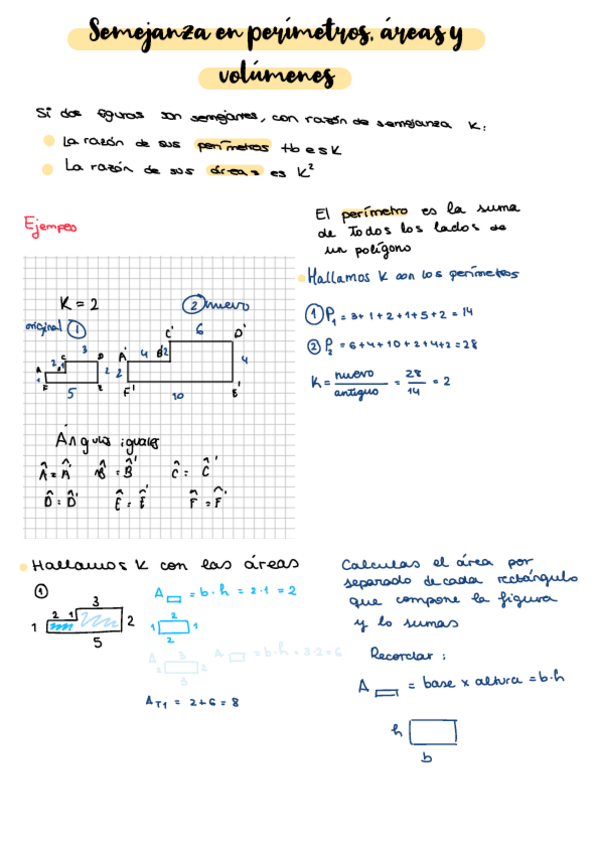 Semejanza en perímetros, áreas y
volúmenes
Si dos figuras son semejantes, con razón de semejanza K:
La razón de sus perímetros tb es K
La razón de sus áreas es K²
Ejemplo
El perímetro es la suma
de Todos los lados de
un polígono
K = 2
② nuevo
original ①
C' 6 D'
A' 4 B' 2
2
4
F' 10 E'
A B C 3 D
1 2 1 2
F 5 E
Ángulos iguales
Â = Â' B̂ = B̂' Ĉ = Ĉ'
D̂ = D̂' Ê = Ê' F̂ = F̂'
Hallamos K con los perímetros
① P₁ = 3+1+2+1+5+2 = 14
② P₂ = 6+4+10+2+4+2 = 28
K = nuevo/antiguo = 28/14 = 2
Hallamos K con las áreas
①
3
2 1
1 2
5
A = b·h = 2·1 = 2
2
1 1
2
A 3
2 2
3
A = b·h = 3·2 = 6
A T1 = 2+6 = 8
Calculas el área por
separado de cada rectángulo
que compone la figura
y lo sumas
Recordar:
A = base x altura = b·h
h
b